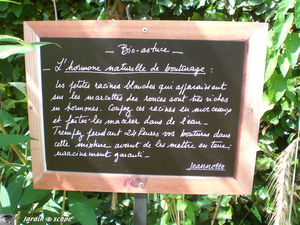 Bio-astuce
L'hormone naturelle de bouturage :
Les petites racines blanches qui apparaissent
sur les marcottes des ronces sont très riches
en hormones. Coupez ces racines en morceaux
et faites-les macérer dans de l'eau.
Trempez pendant 24 heures vos boutures dans
cette mixture avant de les mettre en terre,
enracinement garanti.
Jeannette
jardin scope